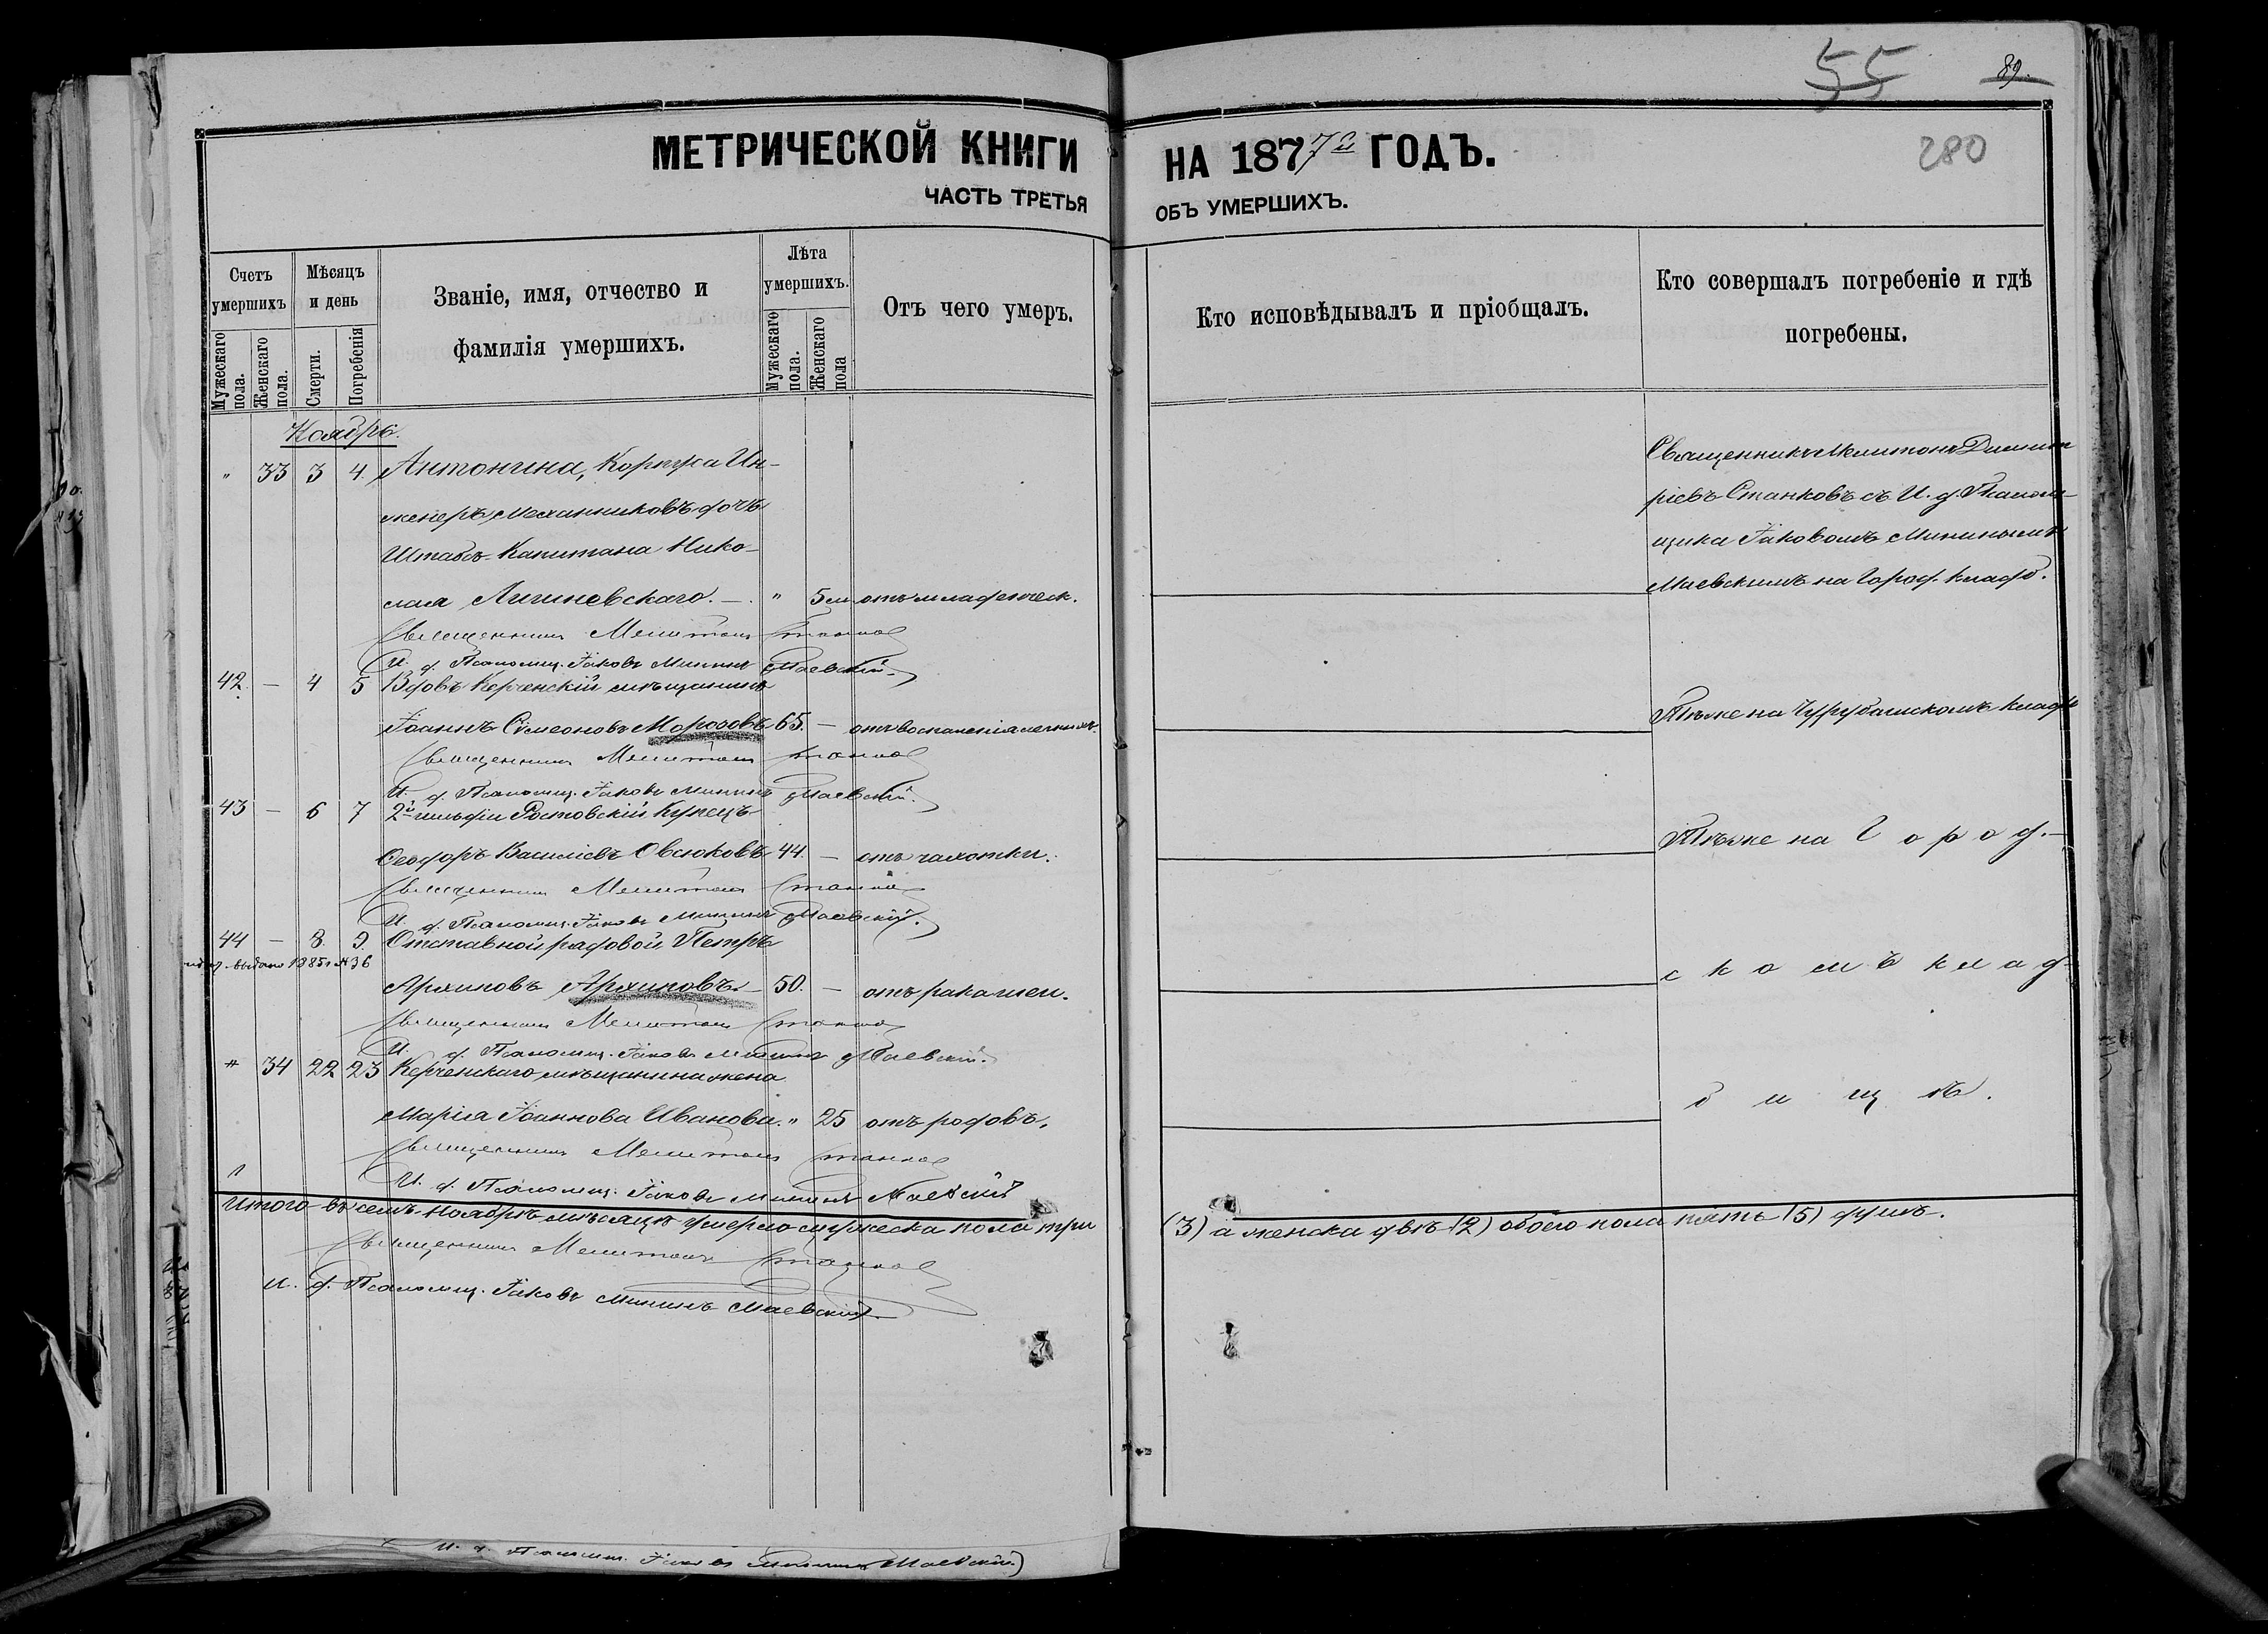 55
89.
280
МЕТРИЧЕСКОЙ КНИГИ НА 1877й ГОДЪ.
ЧАСТЬ ТРЕТЬЯ ОБЪ УМЕРШИХЪ.
Счетъ умершихъ
Мужескаго пола.
Женскаго пола.
Мѣсяцъ и день
Смерти.
Погребенія
Званіе, имя, отчество и
фамилія умершихъ.
Лѣта умершихъ.
Мужескаго пола.
Женскаго пола
Отъ чего умеръ.
Кто исповѣдывалъ и пріобщалъ.
Кто совершалъ погребеніе и гдѣ
погребены.
Ноябрь.
" 33 3 4. Антонина, Корпуса Ин-
женеръ Механиковъ дочь
Штабсъ-Капитана Нико-
лая Лигиневскаго. — " 5м отъ младенческ.
Священникъ Мелитонъ Дмит
ріевъ Станковъ съ И. д. Псалом-
щика Іаковомъ Мининымъ
Маевскимъ на Город. кладб.
Священникъ Мелитонъ Станковъ
И. д. Псаломщ. Іаковъ Мининъ Маевскій.
42. — 4 5 Вдовъ Керченскій мѣщанинъ
Іоаннъ Сѵмеоновъ Морозовъ 65. — отъ воспаленія легкихъ.
Тѣже на Чурубашскомъ кладб
Священникъ Мелитонъ Станковъ
И. д. Псаломщ. Іаковъ Мининъ Маевскій.
43 — 6 7 2й гильдіи Ростовскій Купецъ
Ѳеодоръ Василіевъ Овсюковъ 44. — отъ чахотки.
Тѣже на Город.-
Священникъ Мелитонъ Станковъ
И. д. Псаломщ. Іаковъ Мининъ Маевскій.
44 — 8. 9. Отставной рядовой Петръ
выдано 1885 г. № 36
Архиповъ Архиповъ. — 50. — отъ рака шеи.
скомъ клад-
Священникъ Мелитонъ Станковъ
И. д. Псаломщ. Іаковъ Мининъ Маевскій.
" 34 22 23 Керченскаго мѣщанина жена
Марія Іоаннова Иванова. " 25 отъ родовъ.
бищѣ.
Священникъ Мелитонъ Станковъ
И. д. Псаломщ. Іаковъ Мининъ Маевскій
Итого въ семъ Ноябрѣ мѣсяцѣ умерло мужеска пола три (3) а женска двѣ (2) обоего пола пять (5) душъ.
Священникъ Мелитонъ Станковъ
И. д. Псаломщ. Іаковъ Мининъ Маевскій.
И. д. Псаломщ. Іаковъ Мининъ Маевскій.